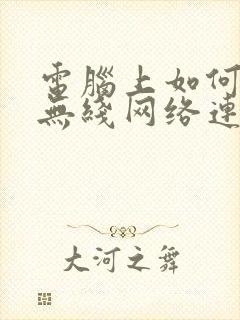 電腦上如何
無綫网络連
大河之舞